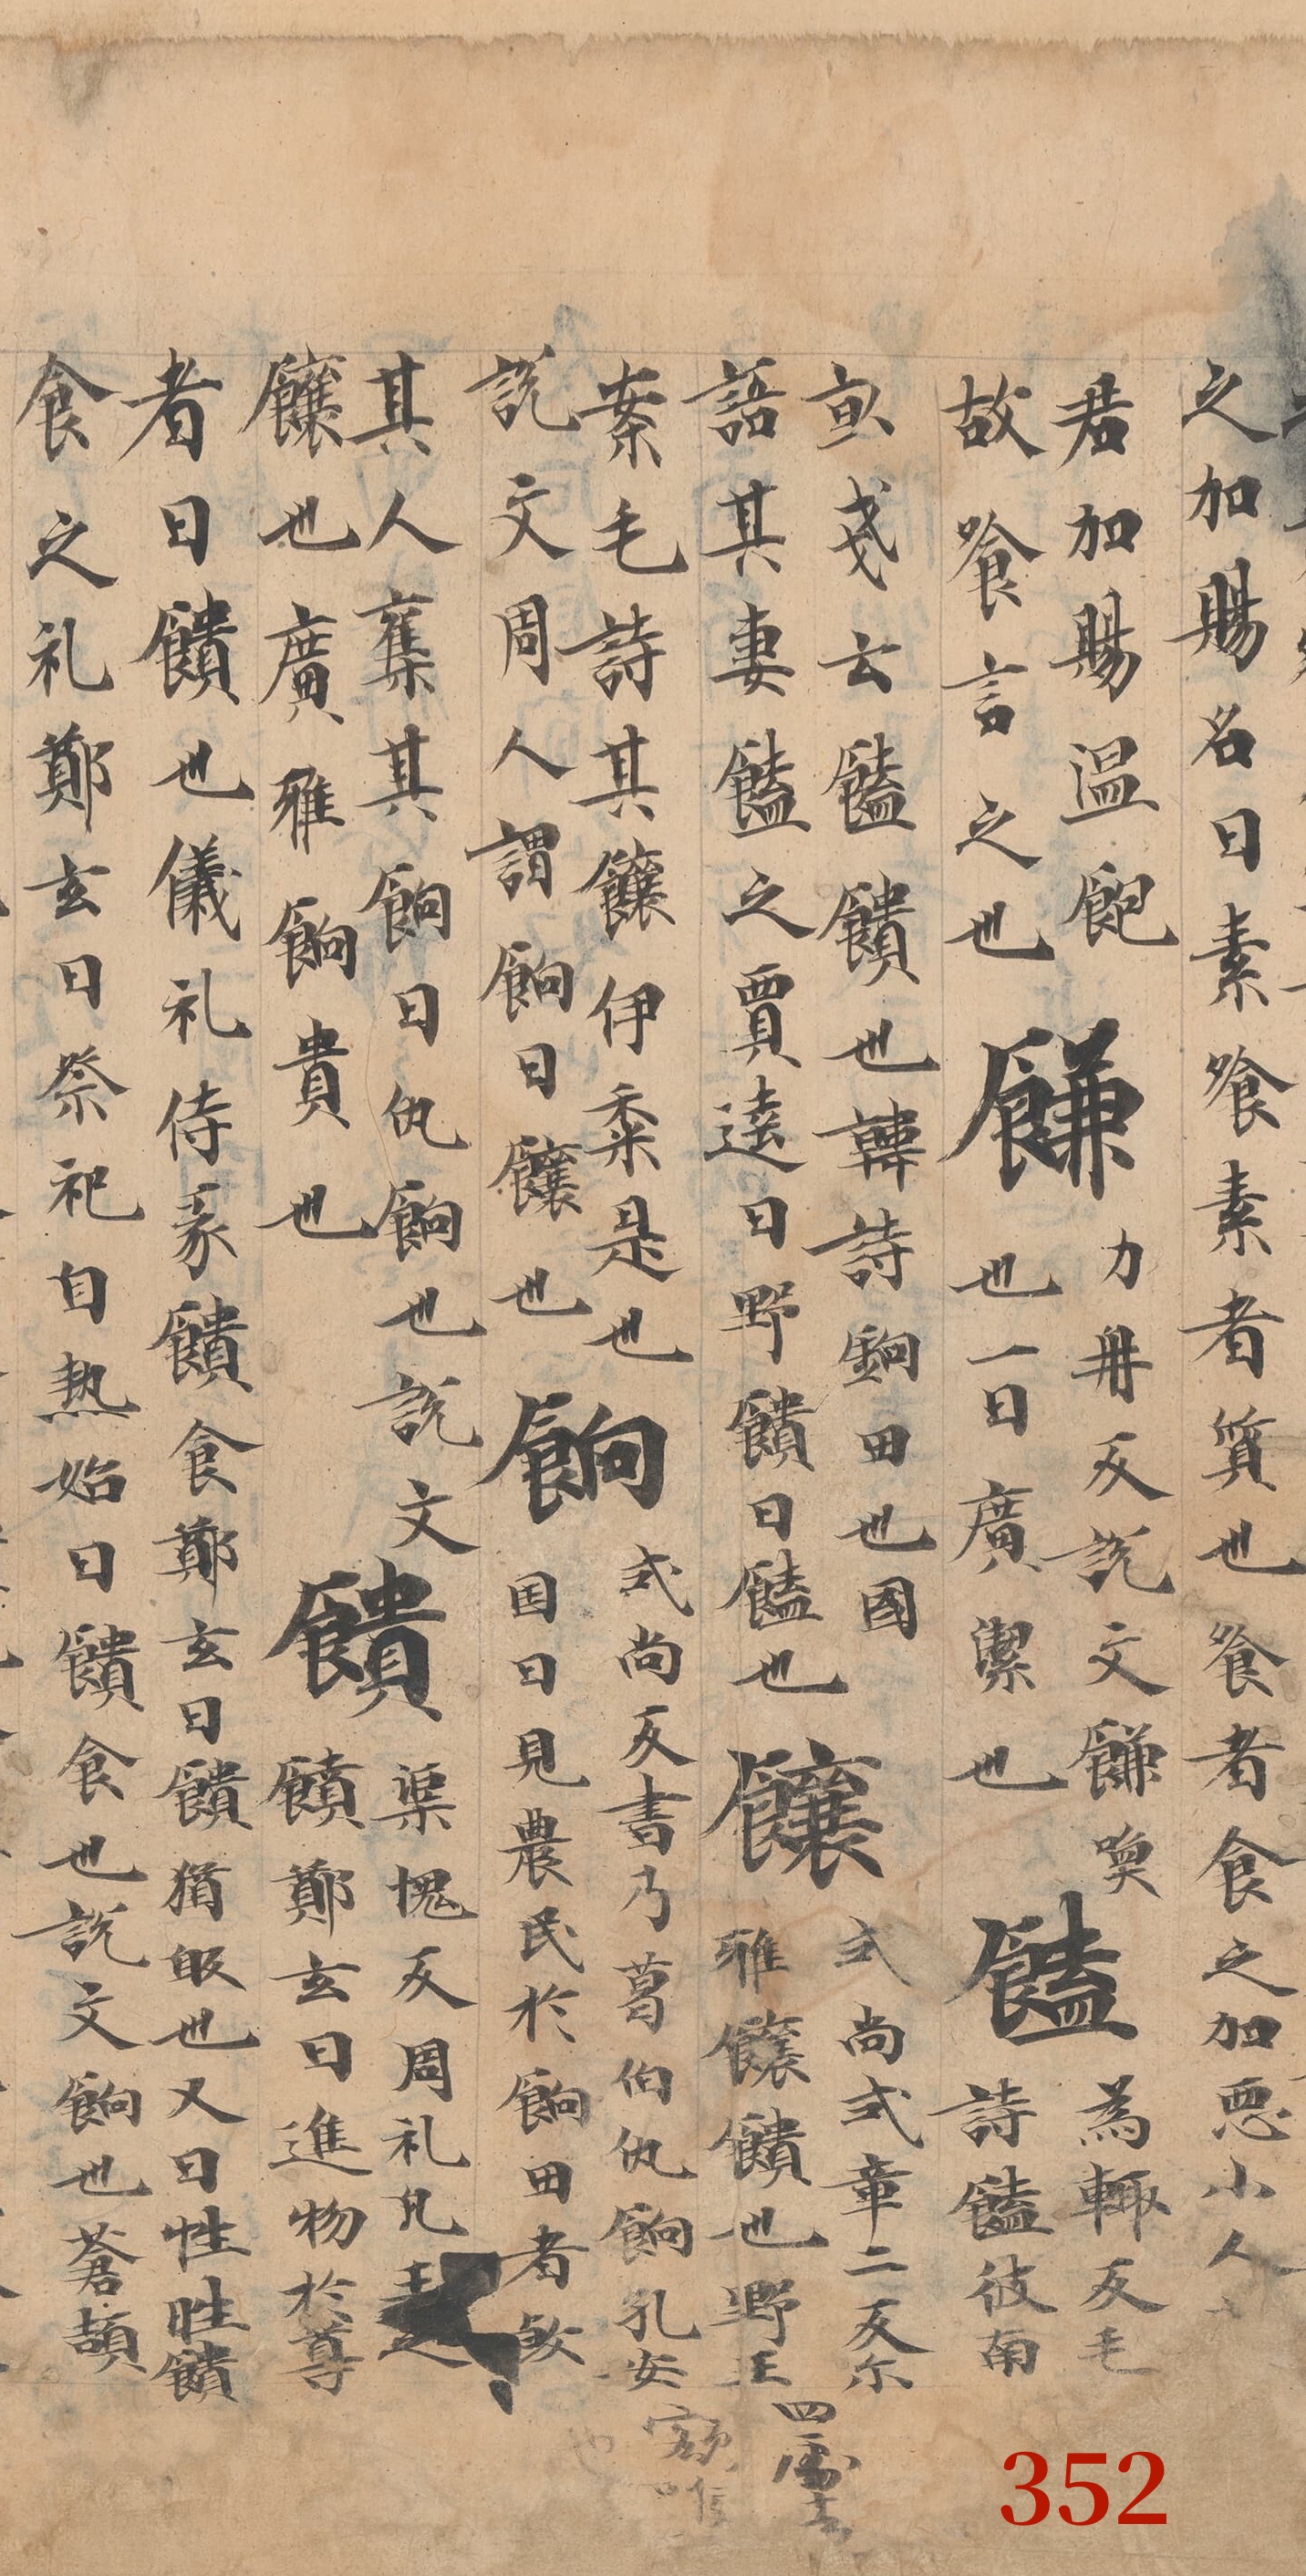 之加賜名曰素飡素者質也飡者食之加惡小人
君加賜温飽
故飡言之也
䭑
力冉反説文䭑喚
也一曰廣潔也
饁
為輙反毛
詩饁彼南
亩戔云饁饋也韓詩餉田也國
語其妻饁之賈逵曰野饋曰饁也
饟
式尚式章二反尒
雅饟饋也野王
案毛詩其饟伊黍是也
説文周人謂餉曰饟也
餉
式尚反書乃葛伯仇餉孔安
国曰見農民於餉田者敓
其人奪其餉曰仇餉也説文
饟也廣雅餉貴也
饋
渠愧反周礼凡王之
饋鄭玄曰進物於尊
者曰饋也儀礼侍豕饋食鄭玄曰饋猶䟽也又曰性胜饋
食之礼鄭玄曰祭祀自熟始曰饋食也説文餉也蒼頡
352